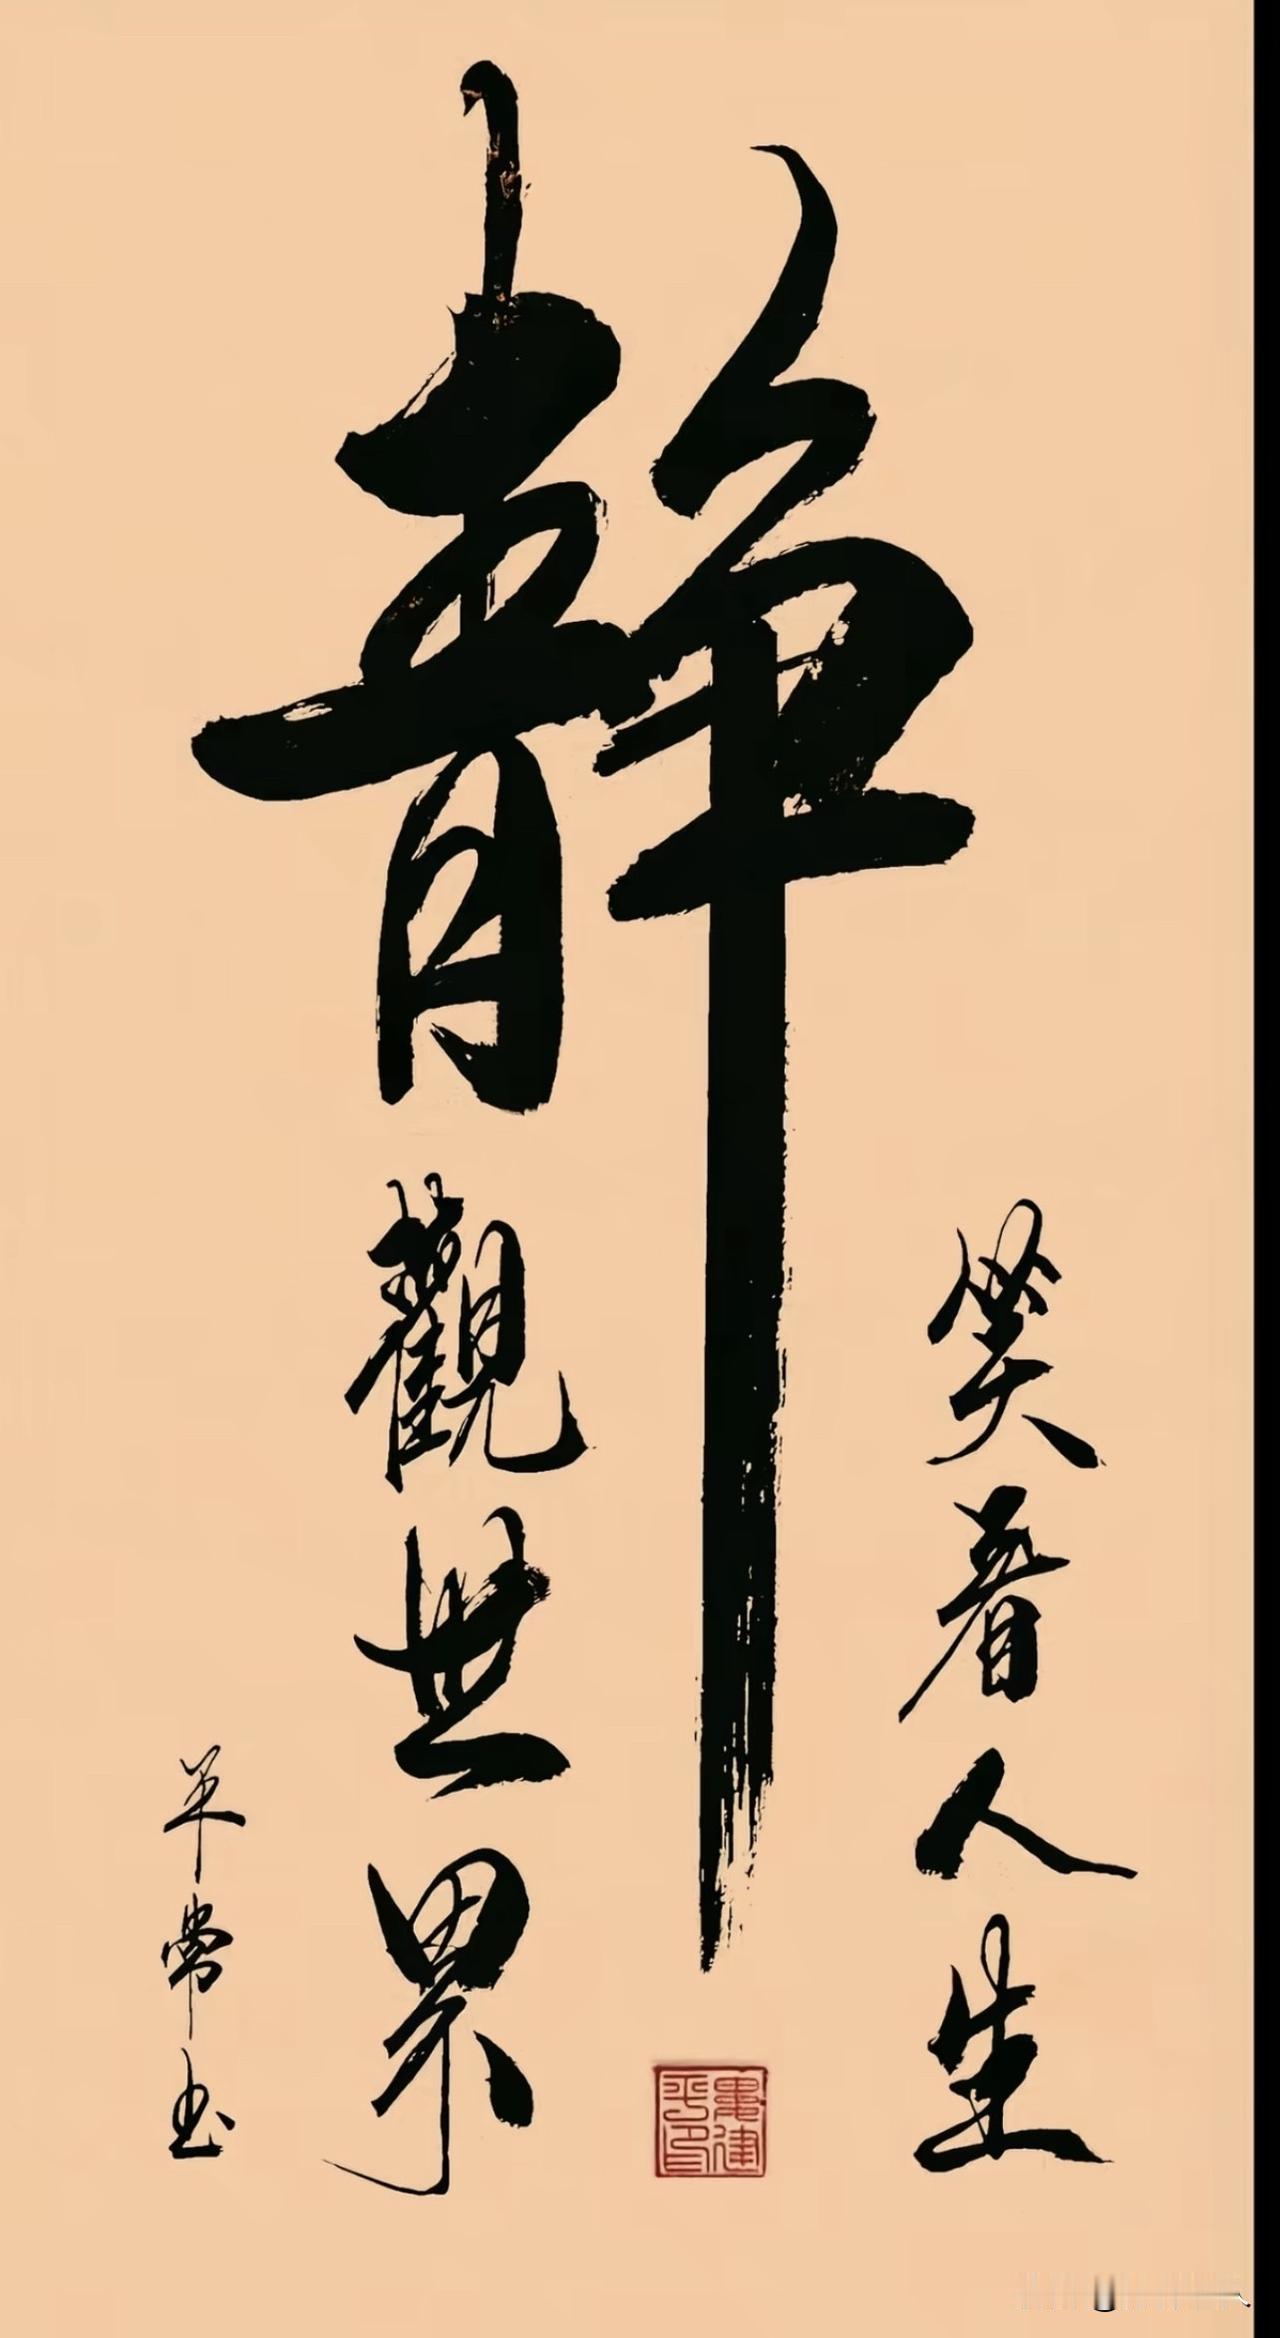 静
笑看人生
靜觀世界
平常书